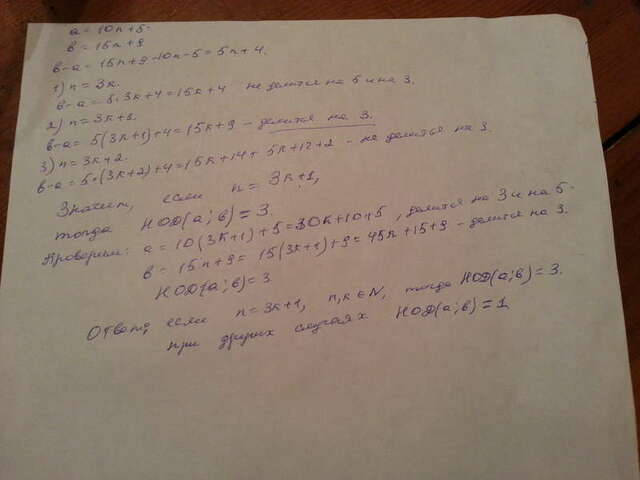 a = 10n+5
b = 15n+9
b-a = 15n+9-10n-5 = 5n+4.
1) n = 3k.
b-a = 5·3k+4 = 15k+4 не делится на 5 и на 3.
2) n = 3k+1.
b-a = 5(3k+1)+4 = 15k+9 - делится на 3.
3) n = 3k+2.
b-a = 5·(3k+2)+4 = 15k+14 = 5k+12+2 - не делится на 3.
Значит, если n = 3k+1,
тогда НОД(a;b) = 3.
Проверим: a = 10(3k+1)+5 = 30k+10+5, делится на 3 и на 5.
b = 15n+9 = 15(3k+1)+9 = 45k+15+9 - делится на 3.
НОД(a;b) = 3
Ответ: если n = 3k+1, n,k ∈ N, тогда НОД(a;b) = 3.
при других случаях НОД(a;b) = 1